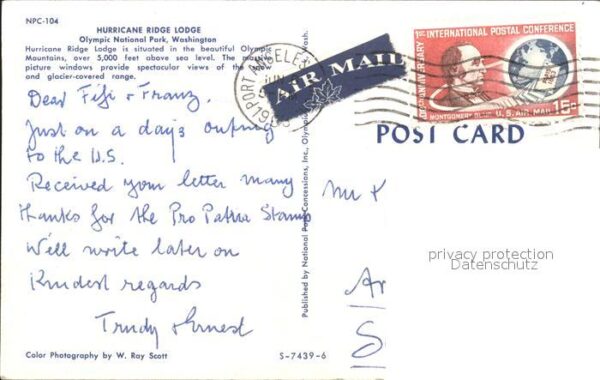 NPC-104
HURRICANE RIDGE LODGE
Olympic National Park, Washington
Hurricane Ridge Lodge is situated in the beautiful Olympic
Mountains, over 5,000 feet above sea level. The massive
picture windows provide spectacular views of the snow
and glacier-covered range.
Dear Fifi + Franz.
Just on a day's outing
to the U.S.
Received your letter many
thanks for the Pro Patria Stamp
We'll write later on
Kindest regards
Trudy + Ernest
Color Photography by W. Ray Scott
S-7439-6
Published by National Park Concessions, Inc., Olympic
PORT ANGELES
JUN
1963
AIR MAIL
1ST INTERNATIONAL POSTAL CONFERENCE
ANNIVERSARY
MONTGOMERY BLAIR U.S. AIR MAIL 15c
POST CARD
Mr
privacy protection
Datenschutz